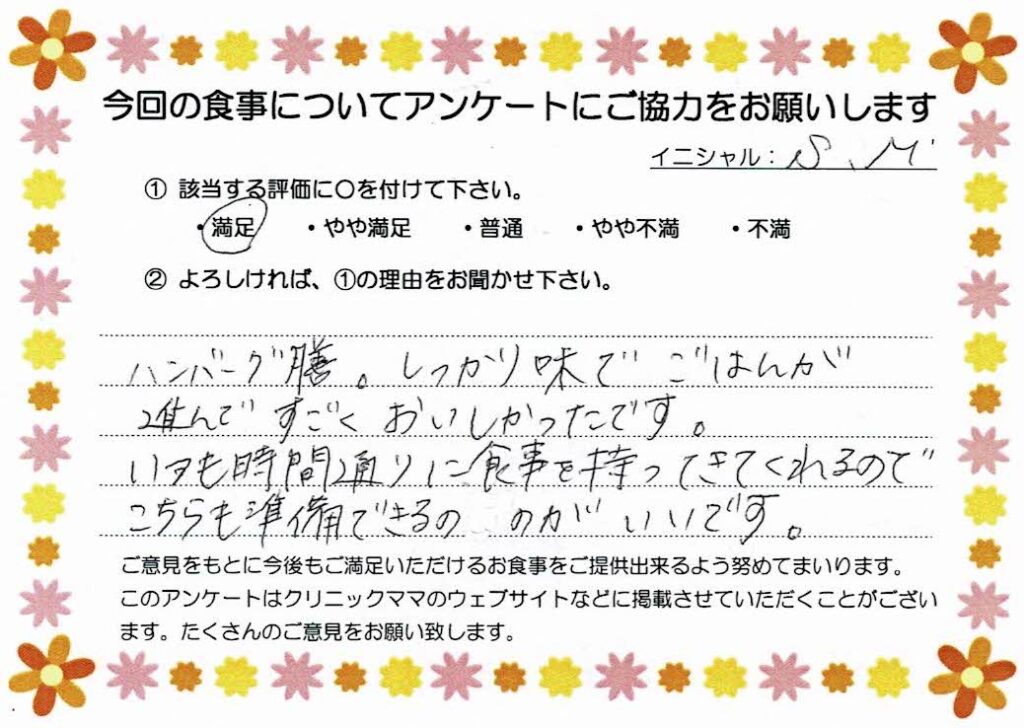 今回の食事についてアンケートにご協力をお願いします
イニシャル：S.M
① 該当する評価に〇を付けて下さい。
・満足 ・やや満足 ・普通 ・やや不満 ・不満
② よろしければ、①の理由をお聞かせ下さい。
ハンバーグ膳。しっかり味で ごはんが
進んで すごく おいしかったです。
いつも時間通りに食事を持ってきてくれるので
こちらも準備できるの のが いいです。
ご意見をもとに今後もご満足いただけるお食事をご提供出来るよう努めてまいります。
このアンケートはクリニックママのウェブサイトなどに掲載させていただくことがござい
ます。たくさんのご意見をお願い致します。